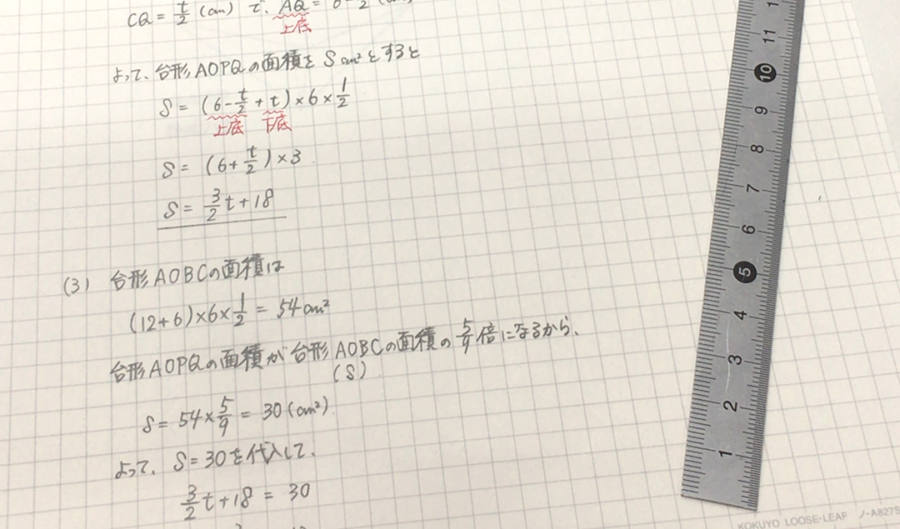 CQ = t/2 (cm) で、AQ = 6 -
上底
よって、台形AOPQの面積をScm²とすると
S = (6 - t/2 + t) × 6 × 1/2
上底 下底
S = (6 + t/2) × 3
S = 3/2 t + 18
(3) 台形AOBCの面積は
(12+6)×6×1/2 = 54cm²
台形AOPQの面積が台形AOBCの面積の5/9倍になるから、
(S)
S = 54 × 5/9 = 30 (cm²)
よって、S = 30を代入して、
3/2 t + 18 = 30
11
10
9
8
7
6
5
4
3
2
1
KOKUYO LOOSE-LEAF ノ-A827S